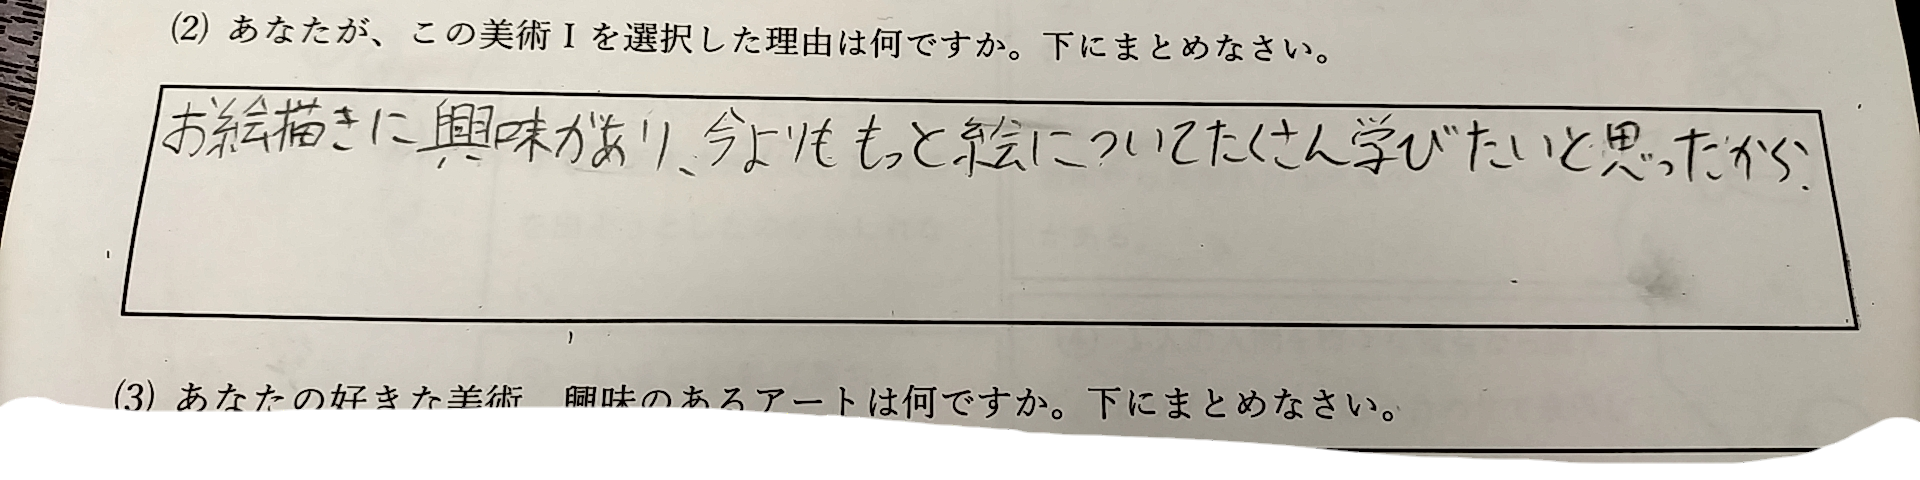 (2) あなたが、この美術Ⅰを選択した理由は何ですか。下にまとめなさい。
お絵描きに興味があり、今よりももっと絵についてたくさん学びたいと思っただから.
(3) あなたの好きな美術、興味のあるアートは何ですか。下にまとめなさい。